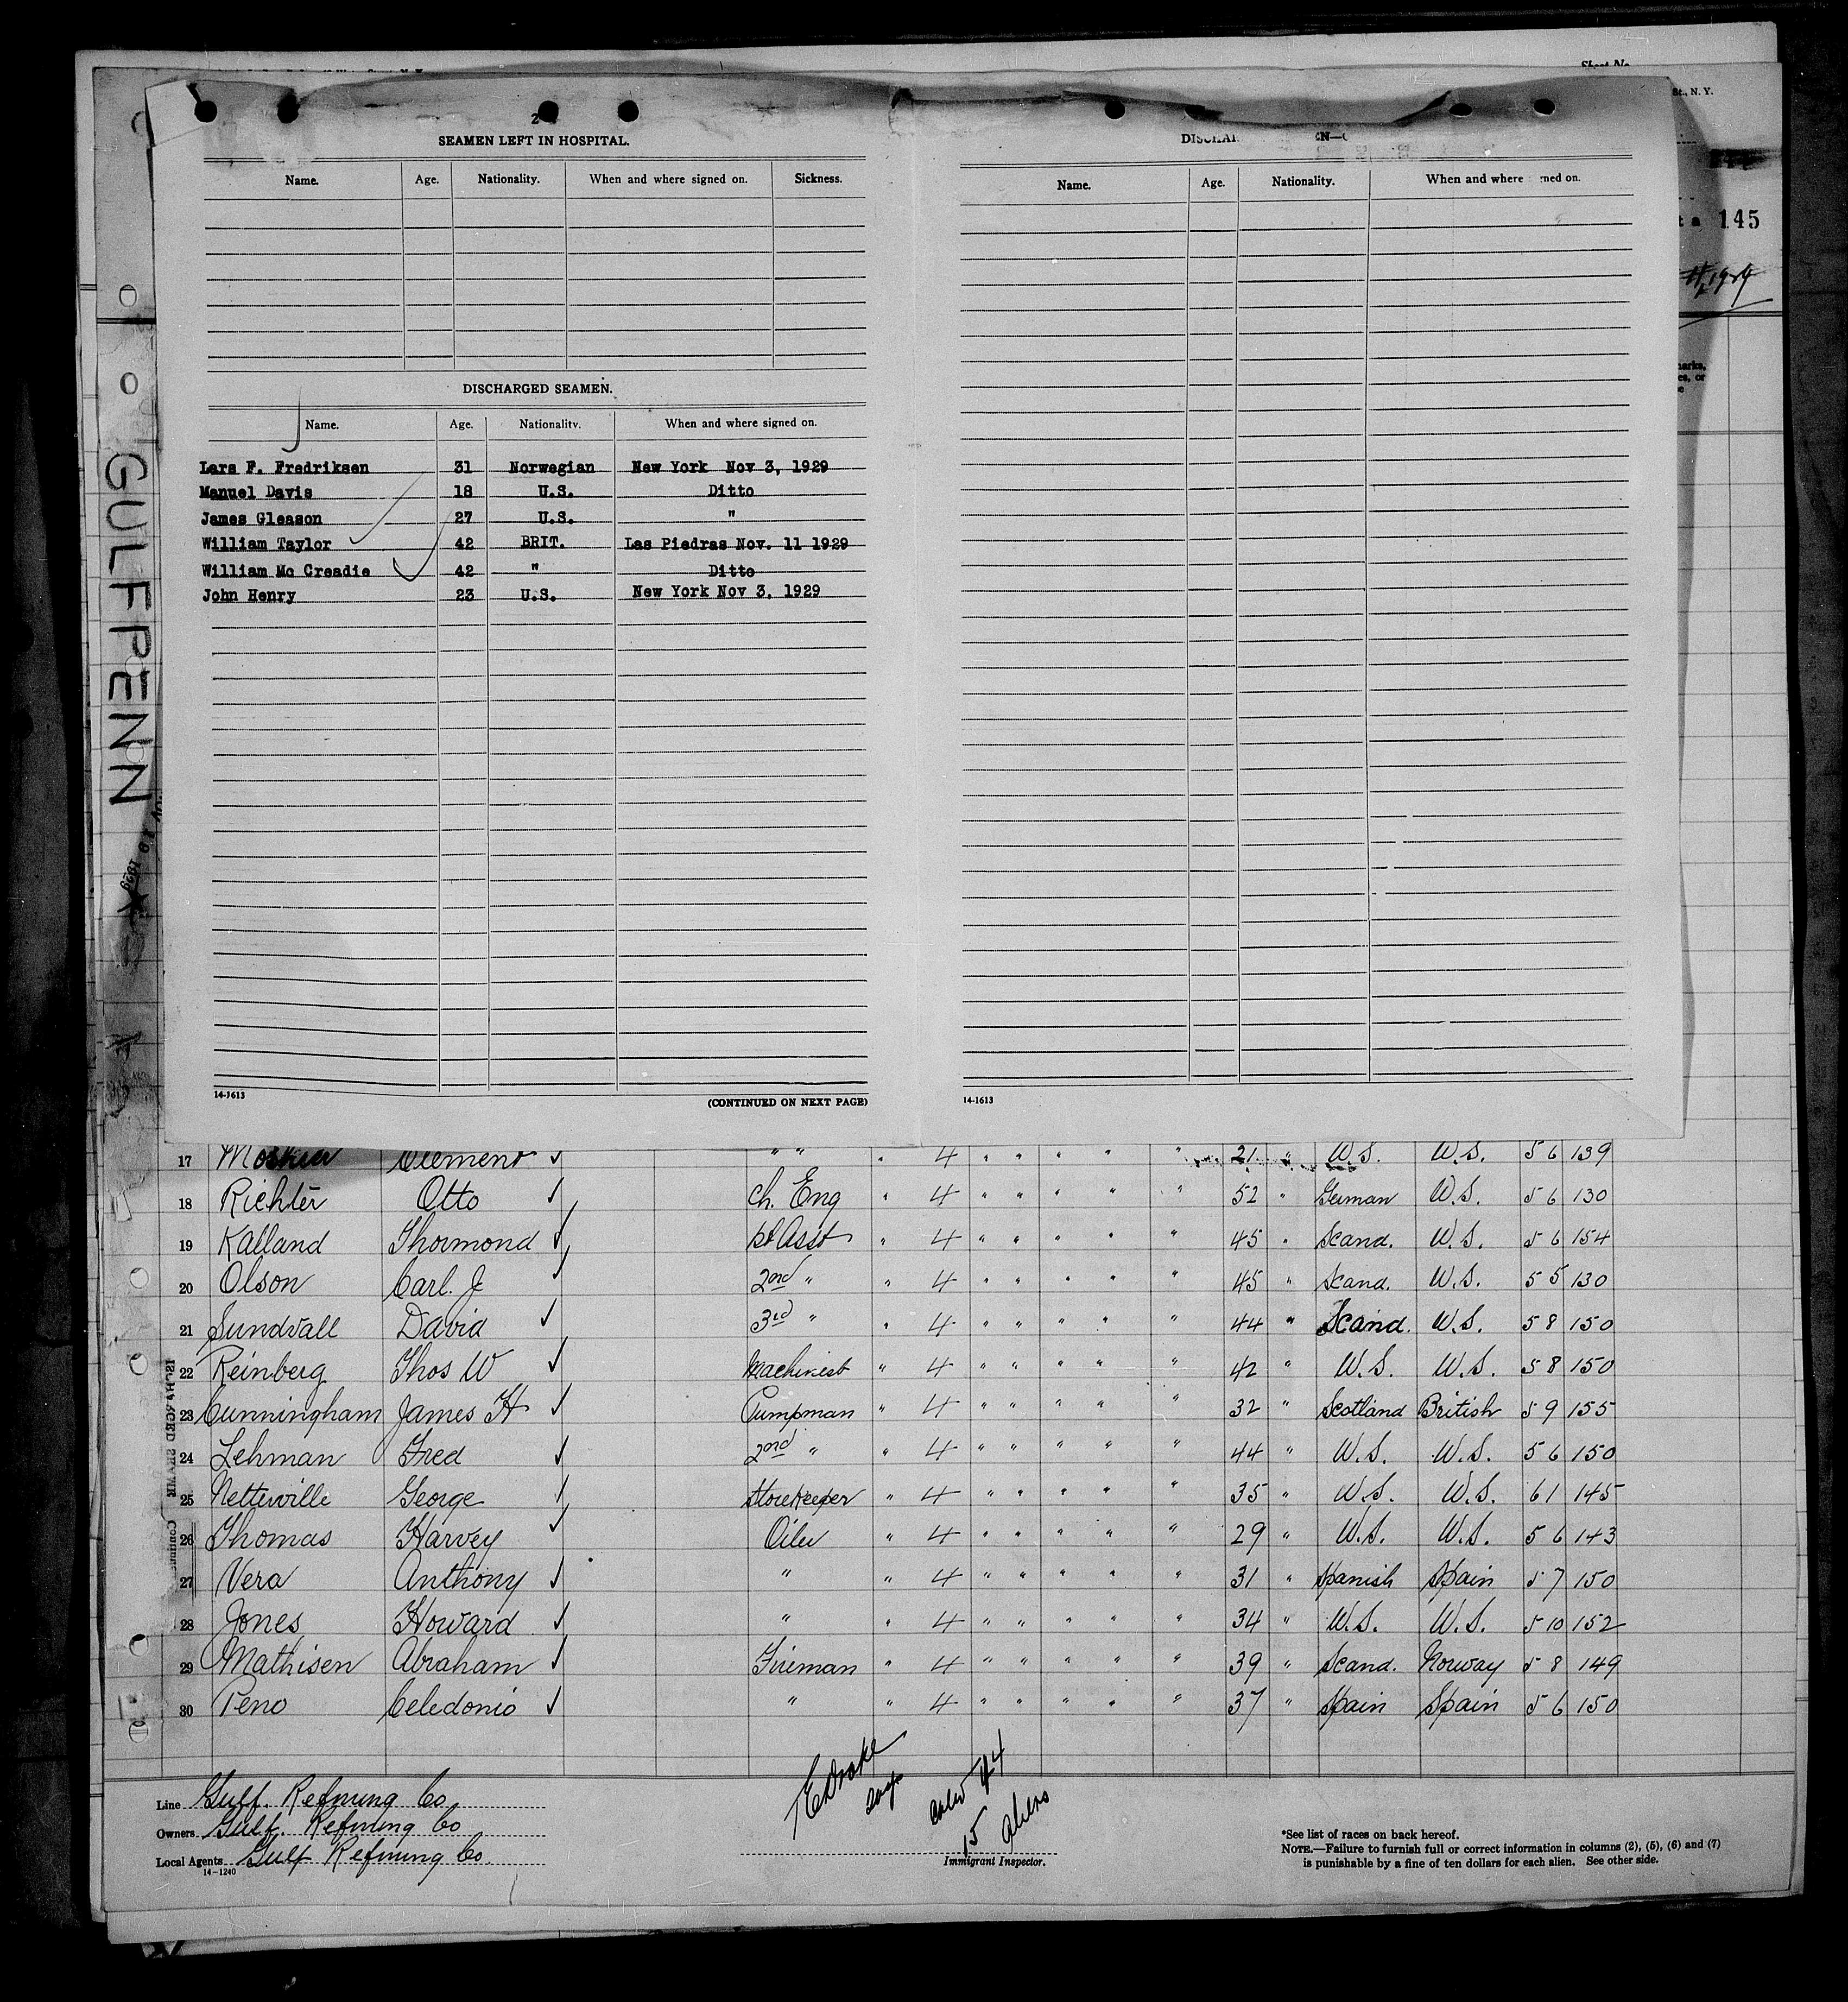 Sheet No.
St., N. Y.
145
1929
2
SEAMEN LEFT IN HOSPITAL.
Name. Age. Nationality. When and where signed on. Sickness.
DISCHARGED SEAMEN.
Name. Age. Nationality. When and where signed on.
Lars F. Fredriksen 31 Norwegian New York Nov 3, 1929
Manuel Davis 18 U.S. Ditto
James Gleason 27 U.S. "
William Taylor 42 BRIT. Las Piedras Nov. 11 1929
William Mc Creadie 42 " Ditto
John Henry 23 U.S. New York Nov 3, 1929
14-1613
(CONTINUED ON NEXT PAGE)
Name. Age. Nationality. When and where
14-1613
GULFPENN
17 Clement ✓ " " " 4 " " " " " 21 " U.S. U.S. 5 6 139
18 Richter Otto ✓ Ch. Eng " 4 " " " " " 52 " German U.S. 5 6 130
19 Kalland Thormond ✓ 1st Asst " 4 " " " " " 45 " Scand. U.S. 5 6 154
20 Olson Carl. J ✓ 2nd " " 4 " " " " " 45 " Scand. U.S. 5 5 130
21 Sundvall David ✓ 3rd " " 4 " " " " " 44 " Scand. U.S. 5 8 150
22 Reinberg Thos W ✓ Machinist " 4 " " " " " 42 " U.S. U.S. 5 8 150
23 Cunningham James H ✓ Pumpman " 4 " " " " " 32 " Scotland British 5 9 155
24 Lehman Fred ✓ 2nd " " 4 " " " " " 44 " U.S. U.S. 5 6 150
25 Netterville George ✓ Storekeeper " 4 " " " " " 35 " U.S. U.S. 6 1 145
26 Thomas Harvey ✓ Oiler " 4 " " " " " 29 " U.S. U.S. 5 6 143
27 Vera Anthony ✓ " " 4 " " " " " 31 " Spanish Spain 5 7 150
28 Jones Howard ✓ " " 4 " " " " " 34 " U.S. U.S. 5 10 152
29 Mathisen Abraham ✓ Fireman " 4 " " " " " 39 " Scand. Norway 5 8 149
30 Peno Celedonio ✓ " " 4 " " " " " 37 " Spain Spain 5 6 150
Line Gulf. Refining Co
Owners Gulf. Refining Co
Local Agents Gulf Refining Co.
14-1240
44
15 aliens
Immigrant Inspector.
*See list of races on back hereof.
NOTE.—Failure to furnish full or correct information in columns (2), (5), (6) and (7)
is punishable by a fine of ten dollars for each alien. See other side.